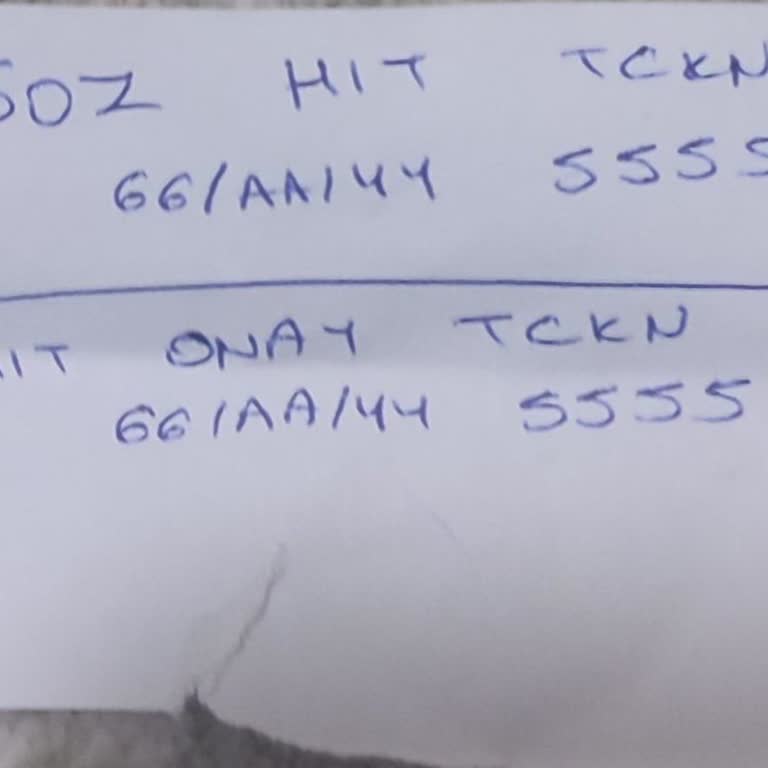 SOZ HIT TCKN
66/AA/44 5555
HIT ONAY TCKN
66/AA/44 5555